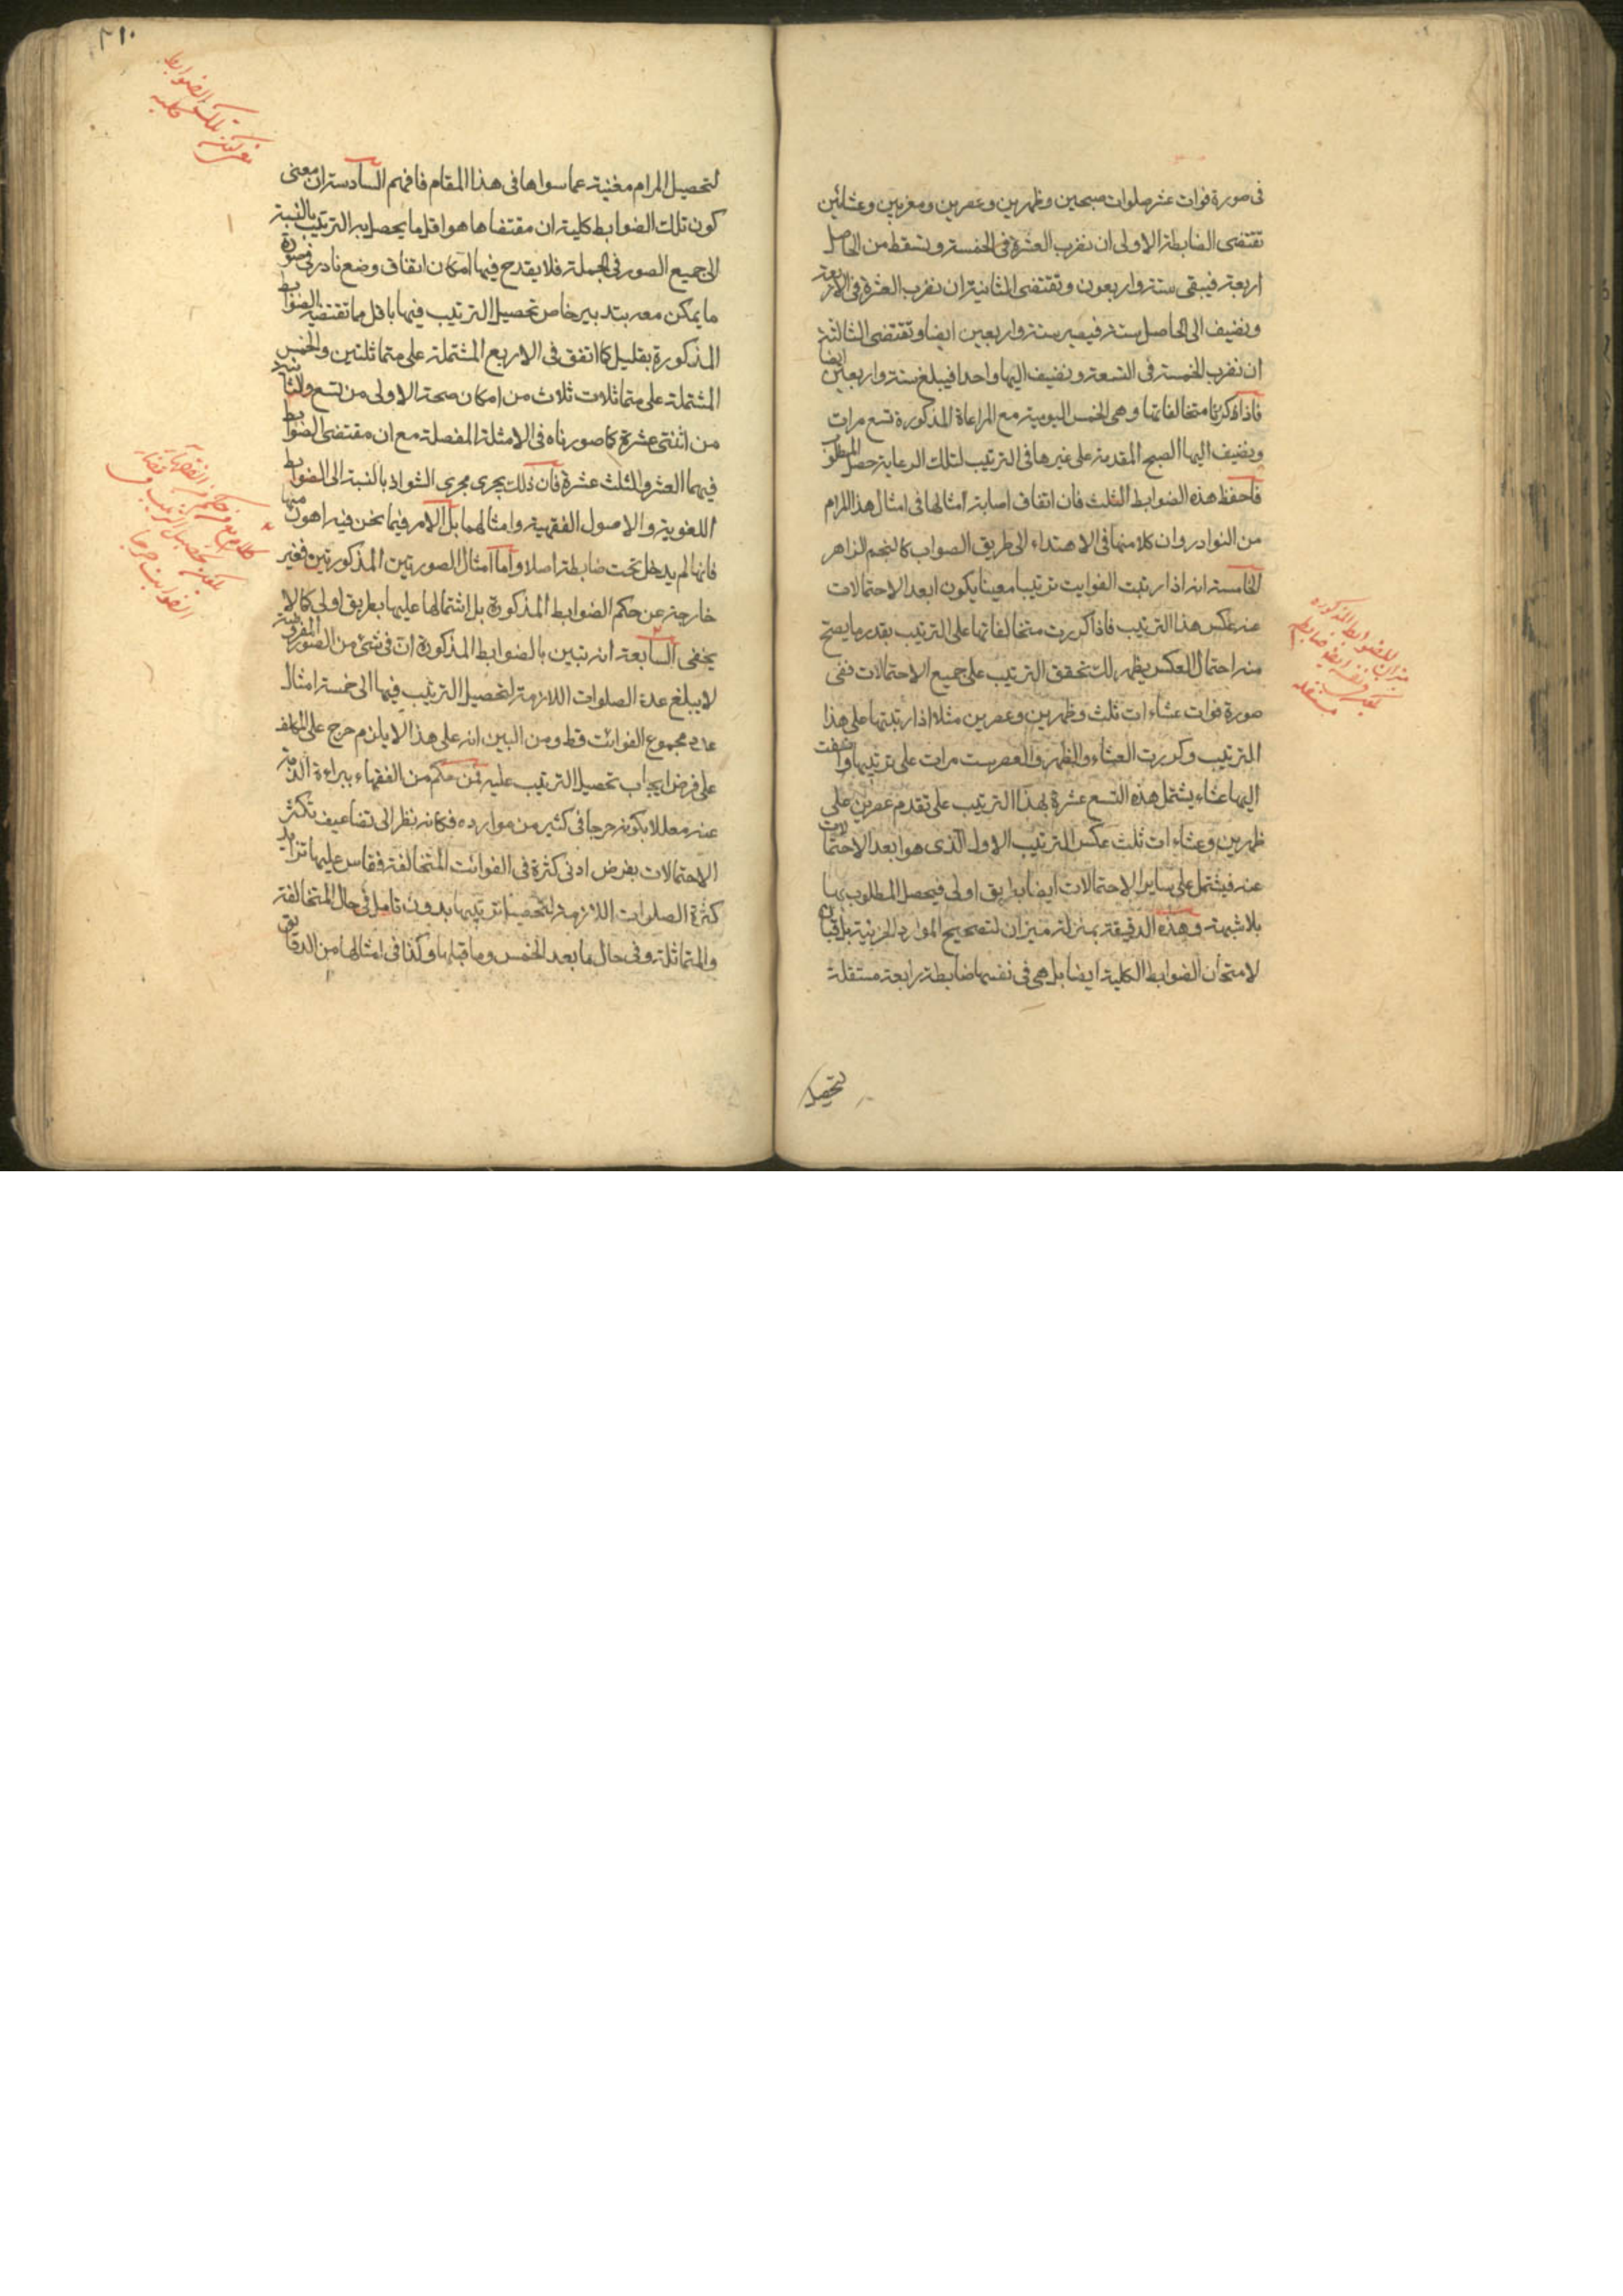 فى صورة فوات عشر صلوات صبحين وظهرين وعصرين ومغربين وعشائين
تقتضى الضابطة الاولى ان نضرب العشرة فى الخمسة ونسقط من الحاصل
اربعة فيبقى ستة واربعون وتقتضى الثانية ان نضرب العشرة فى الاربعة
ونضيف الى الحاصل ستة فيصير ستة واربعين ايضا وتقتضى الثالثة
ان نضرب الخمسة فى التسعة ونضيف اليها واحدا فيبلغ ستة واربعين ايضا
فاذا كررنا متخالفاتها وهى الخمس اليومية مع المراعاة المذكورة تسع مرات
ونضيف اليها الصبح المقدمة على غيرها فى الترتيب لتلك الرعاية حصل المطلوب
فاحفظ هذه الضوابط الثلث فان اتفاق اصابة امثالها فى امثال هذا المرام
من النوادر وان كلا منها فى الاهتداء الى طريق الصواب كالنجم الزاهر
الخامسة انه اذا رتبت الفوايت ترتيبا معينا يكون ابعد الاحتمالات
عنه عكس هذا الترتيب فاذا كررت متخالفاتها على الترتيب بقدر ما يصح
منه احتمال العكس يظهر لك تحقق الترتيب على جميع الاحتمالات ففى
صورة فوات عشاءات ثلث وظهرين وعصرين مثلا اذا رتبتها على هذا
الترتيب وكررت العشاء والظهر والعصر ست مرات على ترتيبها واضفت
اليها عشاء يشتمل هذه التسع عشرة بهذا الترتيب على تقدم عصرين على
ظهرين وعشاءات ثلث عكس الترتيب الاول الذى هو ابعد الاحتمالات
عنه فيشتمل على ساير الاحتمالات ايضا بطريق اولى فيحصل المطلوب بها
بلا شبهة وهذه الدقيقة بمنزلة ميزان لتصحيح الموارد الجزئية بل قبان
لامتحان الضوابط الكلية ايضا بل هى فى نفسها ضابطة رابعة مستقلة
لتحصيل
ميزان للضوابط المذكورة
مستقله
٢١٠
لتحصيل المرام مغنية عما سواها فى هذا المقام فافهم السادسة ان معنى
كون تلك الضوابط كلية ان مقتضاها هو اقل ما يحصل به الترتيب بالنسبة
الى جميع الصور فى الجملة فلا يقدح فيها امكان اتفاق وضع نادر فى صورة
ما يمكن معه بتدبير خاص تحصيل الترتيب فيها باقل مما تقتضيه الضوابط
المذكورة بقليل كما اتفق فى الاربع المشتملة على متماثلتين والخمس
المشتملة على متماثلات ثلاث من امكان صحة الاولى من تسع والثانية
من اثنتى عشرة كما صورناه فى الامثلة المفصلة مع ان مقتضى الضوابط
فيهما العشر والثلث عشرة فان ذلك يجرى مجرى الشواذ بالنسبة الى الضوابط
اللغوية والاصول الفقهية وامثالهما بل الامر فيما نحن فيه اهون منها
فانها لم يدخل تحت ضابطة اصلا واما امثال الصورتين المذكورتين فغير
خارجة عن حكم الضوابط المذكورة بل اشتمالها عليها بطريق اولى كما لا
يخفى السابعة انه تبين بالضوابط المذكورة ان فى شئ من الصور المفروضة
لا يبلغ عدة الصلوات اللازمة لتحصيل الترتيب فيها الى خمسة امثال
عدد مجموع الفوائت قط ومن البين انه على هذا لا يلزم حرج على المكلف
على فرض ايجاب تحصيل الترتيب عليه فمن حكم من الفقهاء ببراءة الذمة
عنه معللا بكونه حرجا فى كثير من موارده فكانه نظر الى تضاعيف تكثر
الاحتمالات بفرض ادنى كثرة فى الفوائت المتخالفة فقاس عليها تزايد
كثرة الصلوات اللازمة لتحصيل ترتيبها بدون تامل فى حال المتخالفة
والمتماثلة وفى حال ما بعد الخمس وما قبلها وكذا فى امثالها من الدقايق
تلك الضوابط
كليه
كلام مع من حكم من الفقهاء
بكون تحصيل الترتيب فى قضاء
الفوايت حرجا